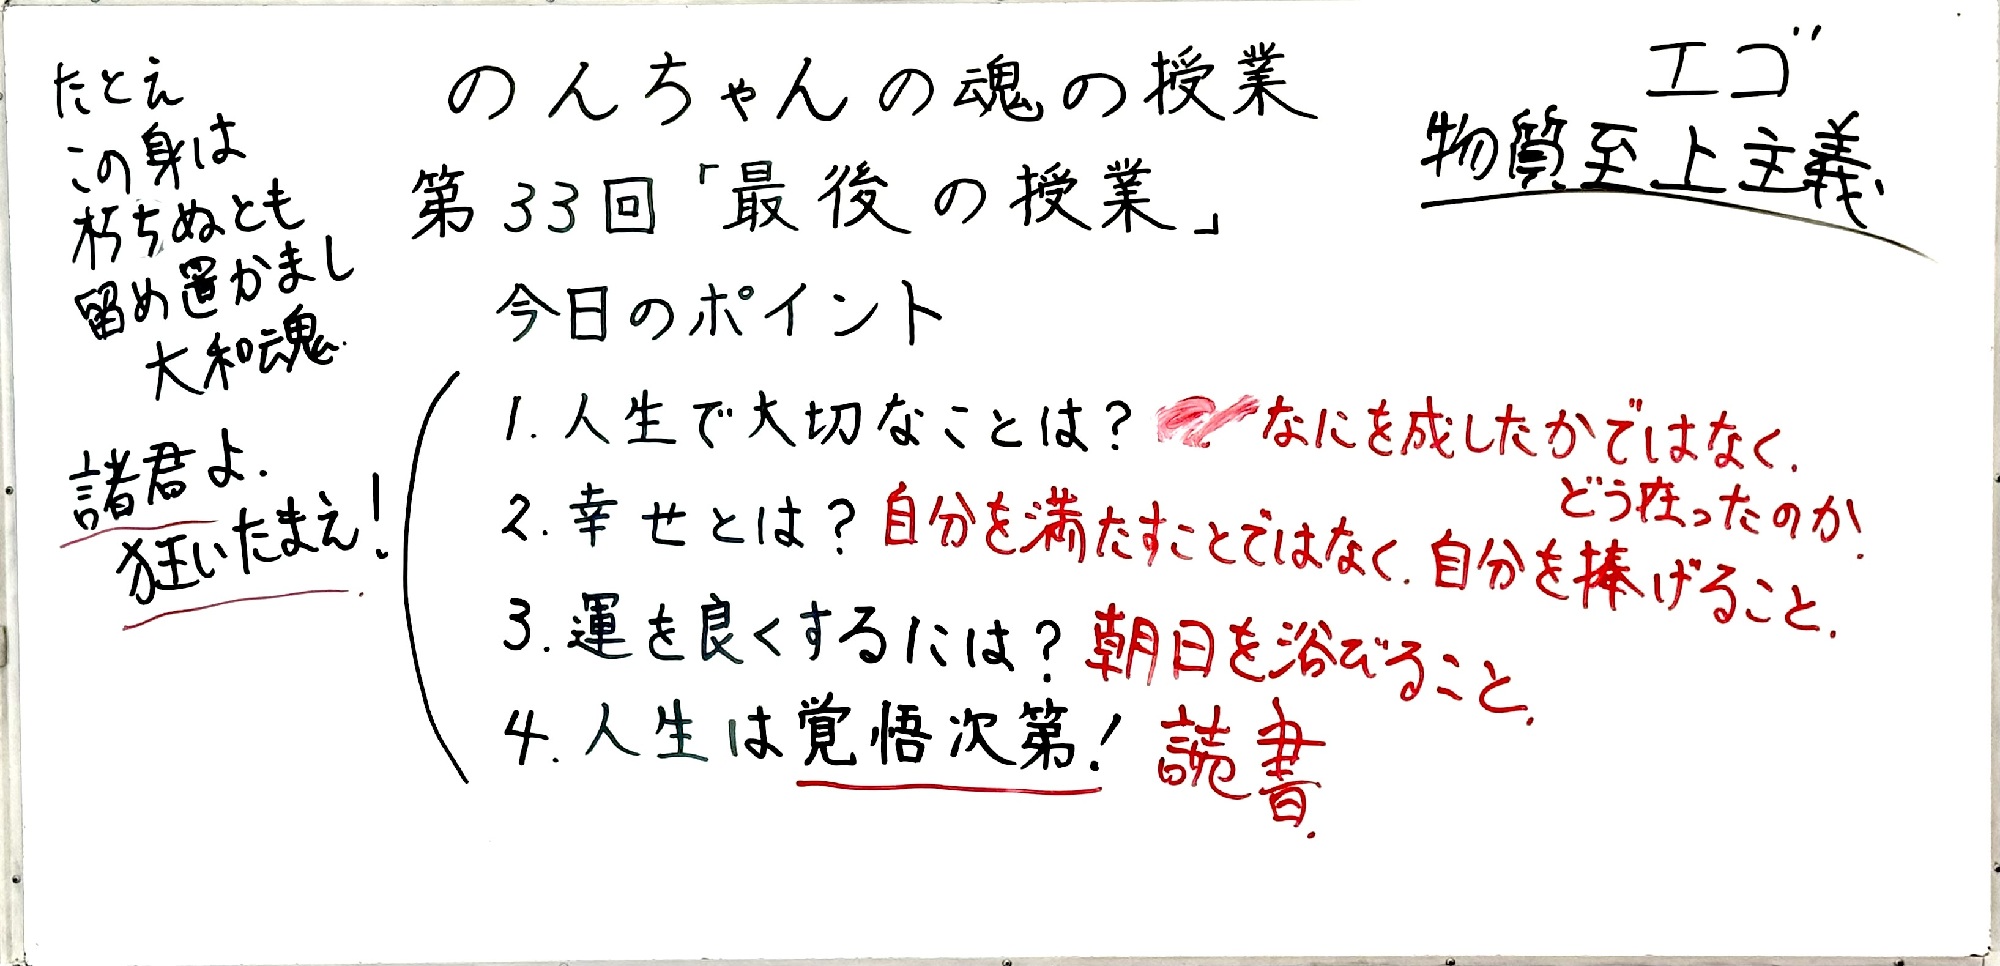 のんちゃんの魂の授業
第33回「最後の授業」
今日のポイント
1. 人生で大切なことは? なにを成したかではなく、
どう在ったのか!
2. 幸せとは? 自分を満たすことではなく、自分を捧げること。
3. 運を良くするには? 朝日を浴びること。
4. 人生は覚悟次第! 読書。
たとえ
この身は
朽ちぬとも
留め置かまし
大和魂
諸君よ、
狂いたまえ!
エゴ
物質至上主義、